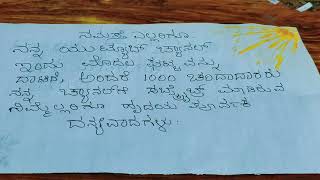 ನಮಸ್ತೆ ಎಲ್ಲರಿಗೂ..
ನನ್ನ ಯುಟ್ಯೂಬ್ ಚ್ಯಾನಲ್
ಇಂದು ಮೊದಲ ಘಟ್ಟವನ್ನು
ದಾಟಿದೆ, ಅಂದರೆ 1000 ಚಂದಾದಾರರು
ನನ್ನ ಚ್ಯಾನಲ್‌ಗೆ ಸಬ್ಸ್ಕ್ರೈಬ್ ಮಾಡಿರುವ
ನಿಮ್ಮೆಲ್ಲರಿಗೂ ಹೃದಯ ಪೂರ್ವಕ
ಧನ್ಯವಾದಗಳು.